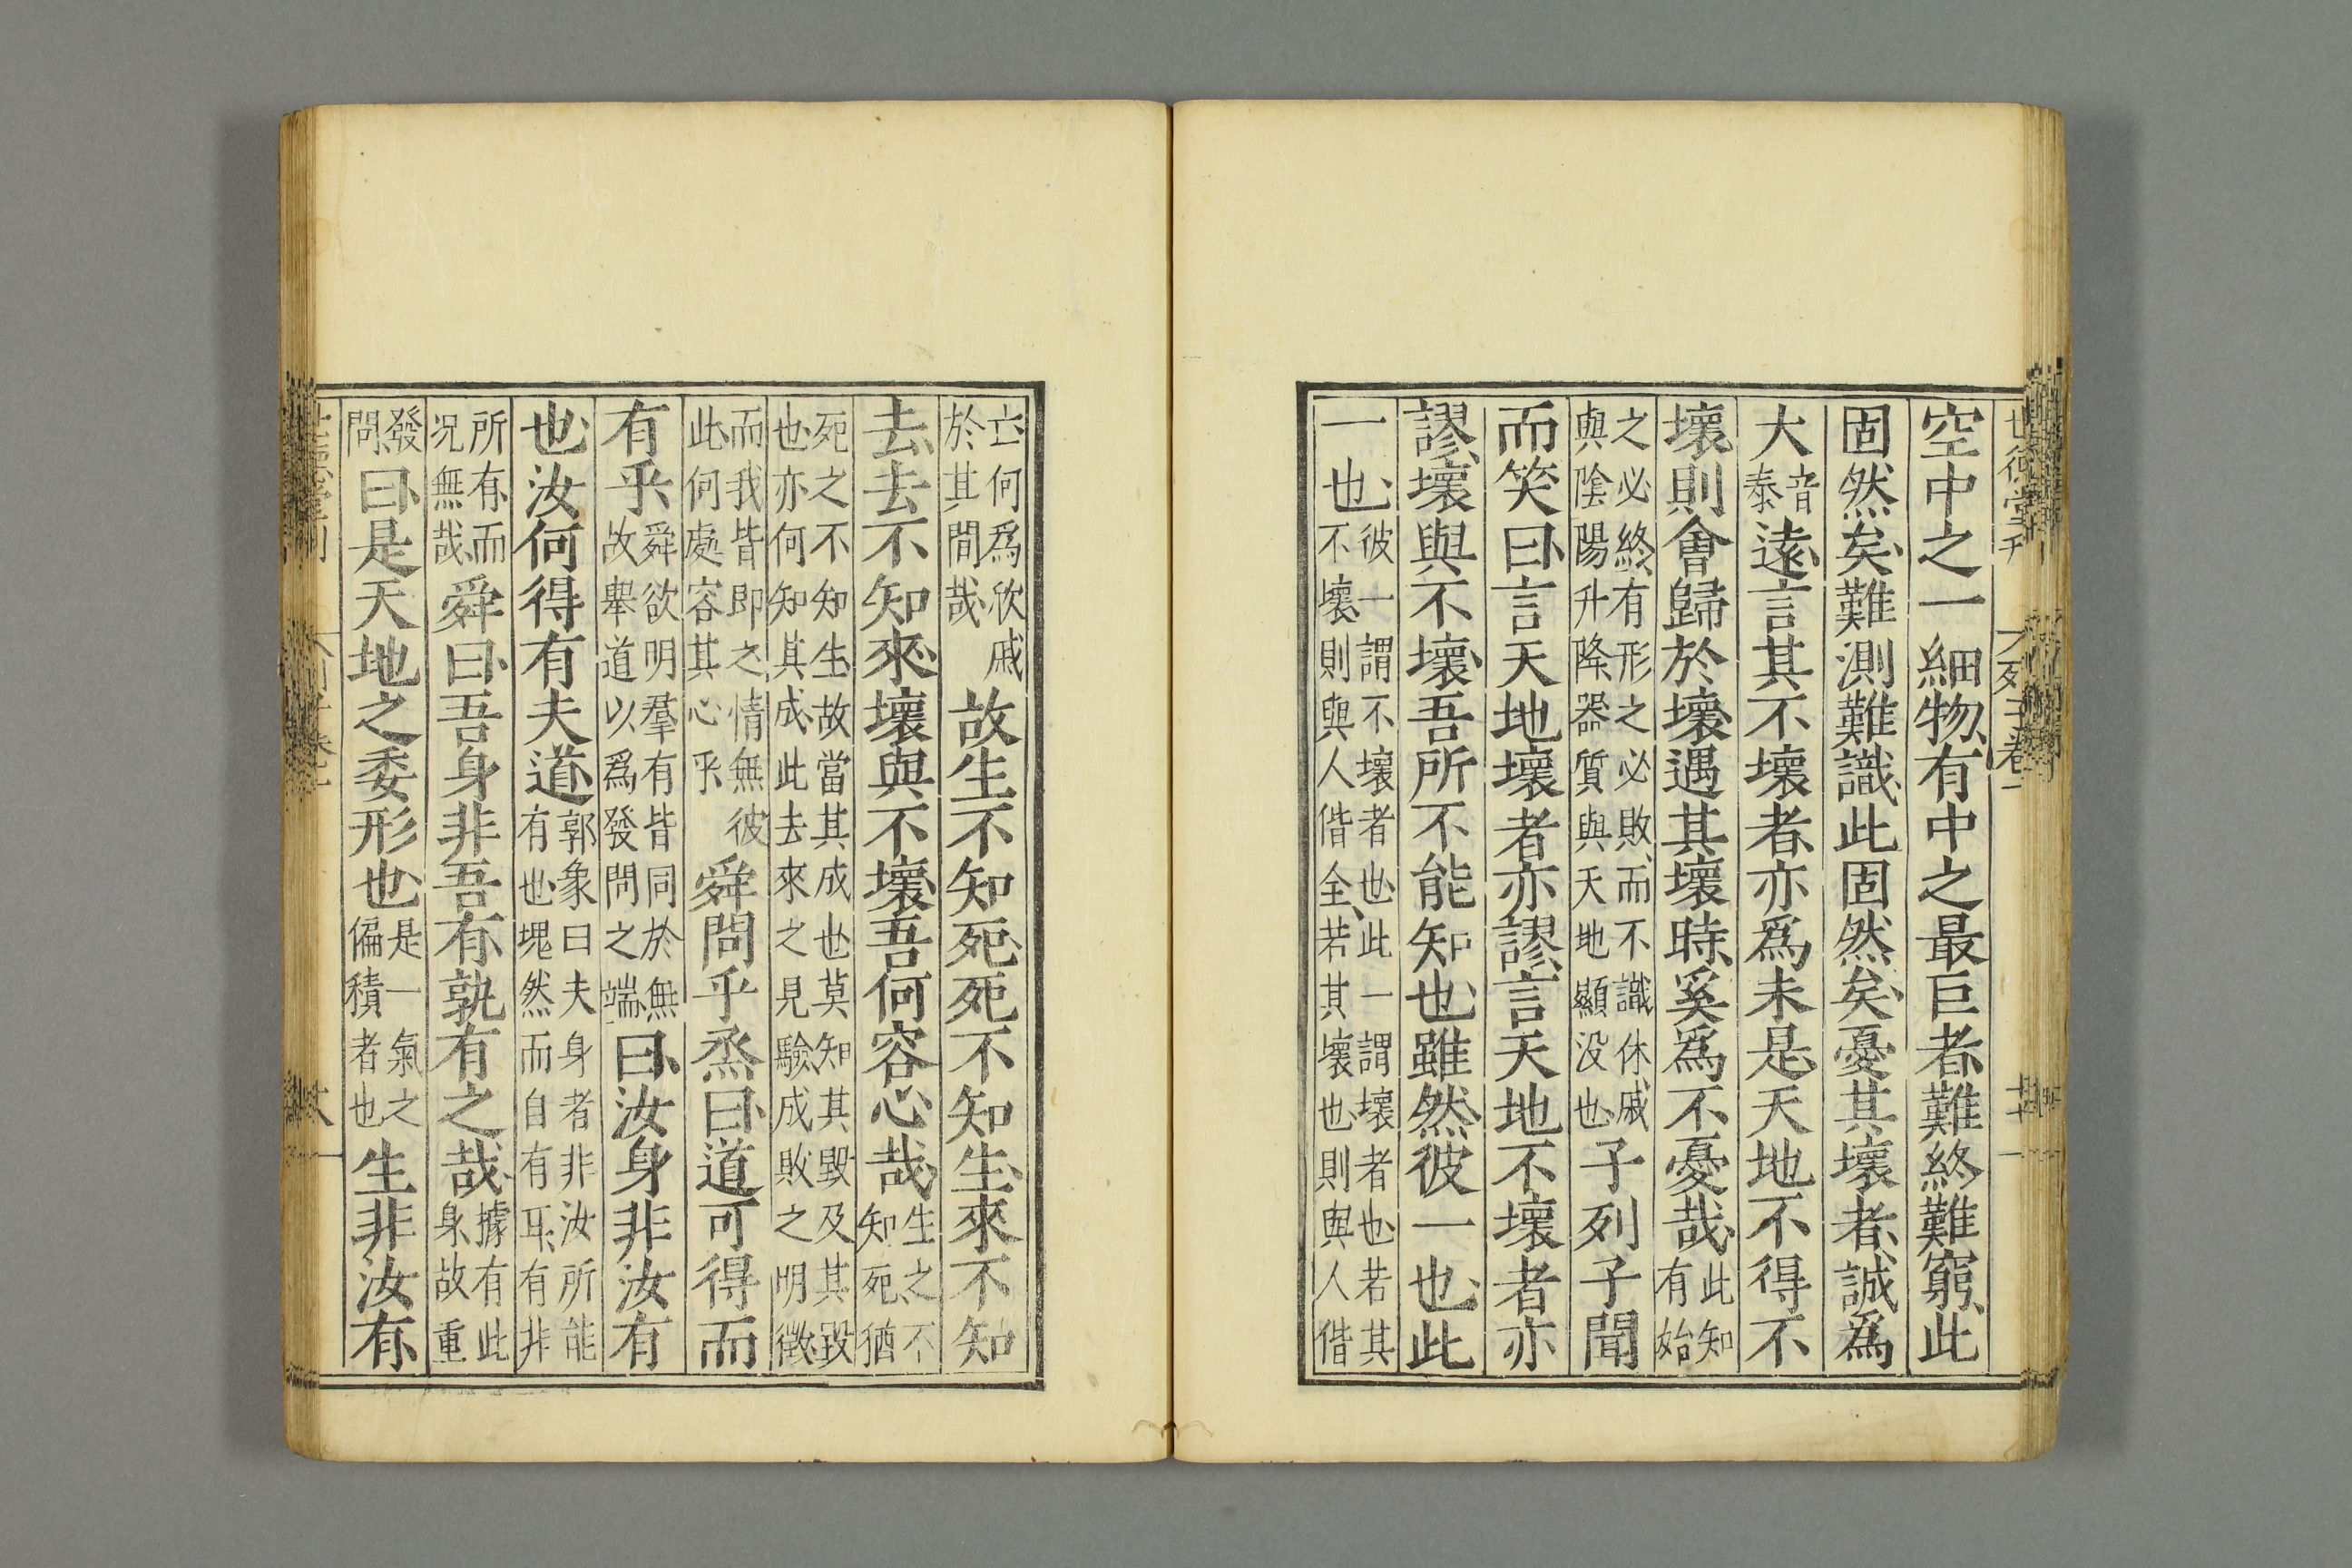 空中之一細物有中之最巨者難終難窮此
固然矣難測難識此固然矣憂其壞者誠爲
大音泰遠言其不壞者亦爲未是天地不得不
壞則會歸於壞遇其壞時奚爲不憂哉此知有始
之必終有形之必敗而不識休戚與陰陽升降器質與天地顯没也子列子聞
而笑曰言天地壞者亦謬言天地不壞者亦
謬壞與不壞吾所不能知也雖然彼一也此
一也彼一謂不壞者也此一謂壞者也若其不壞則與人偕全若其壞也則與人偕
亡何爲欣戚於其間哉故生不知死死不知生來不知
去去不知來壞與不壞吾何容心哉生之不知死猶
死之不知生故當其成也莫知其毀及其毀也亦何知其成此去來之見驗成敗之明徵
而我皆即之情無彼此何處容其心乎舜問乎烝曰道可得而
有乎舜欲明羣有皆同於無故舉道以爲發問之端曰汝身非汝有
也汝何得有夫道郭象曰夫身者非汝所能有也塊然而自有耳有非
所有而况無哉舜曰吾身非吾有孰有之哉據有此身故重
發問曰是天地之委形也是一氣之偏積者也生非汝有